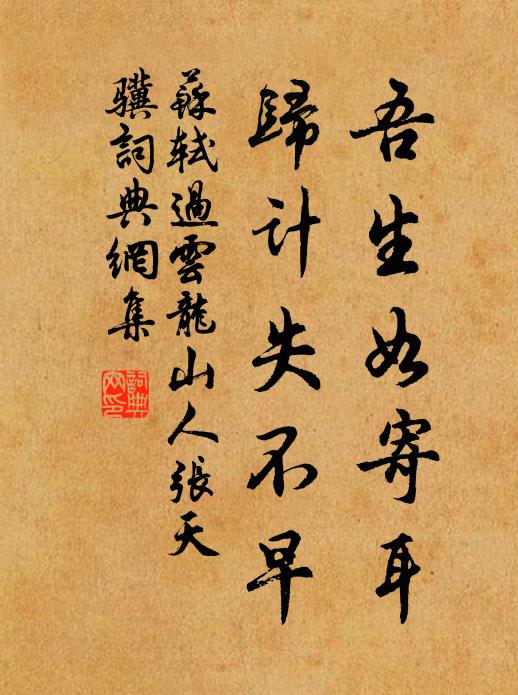 吾生如寄耳
歸计失不早
蘇軾過雲龍山人張天
驥詞典網集
詞典
网印